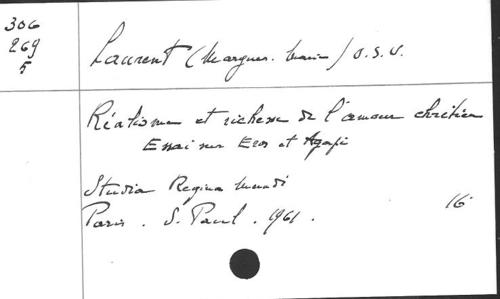 306
269
5
Laurent (Margu. Marie) O.S.U.
Réalisme et richesse de l'amour chrétien
Essai sur Eros et Agapè
Studia Regina Mundi
Paris. S. Paul. 1961.
16